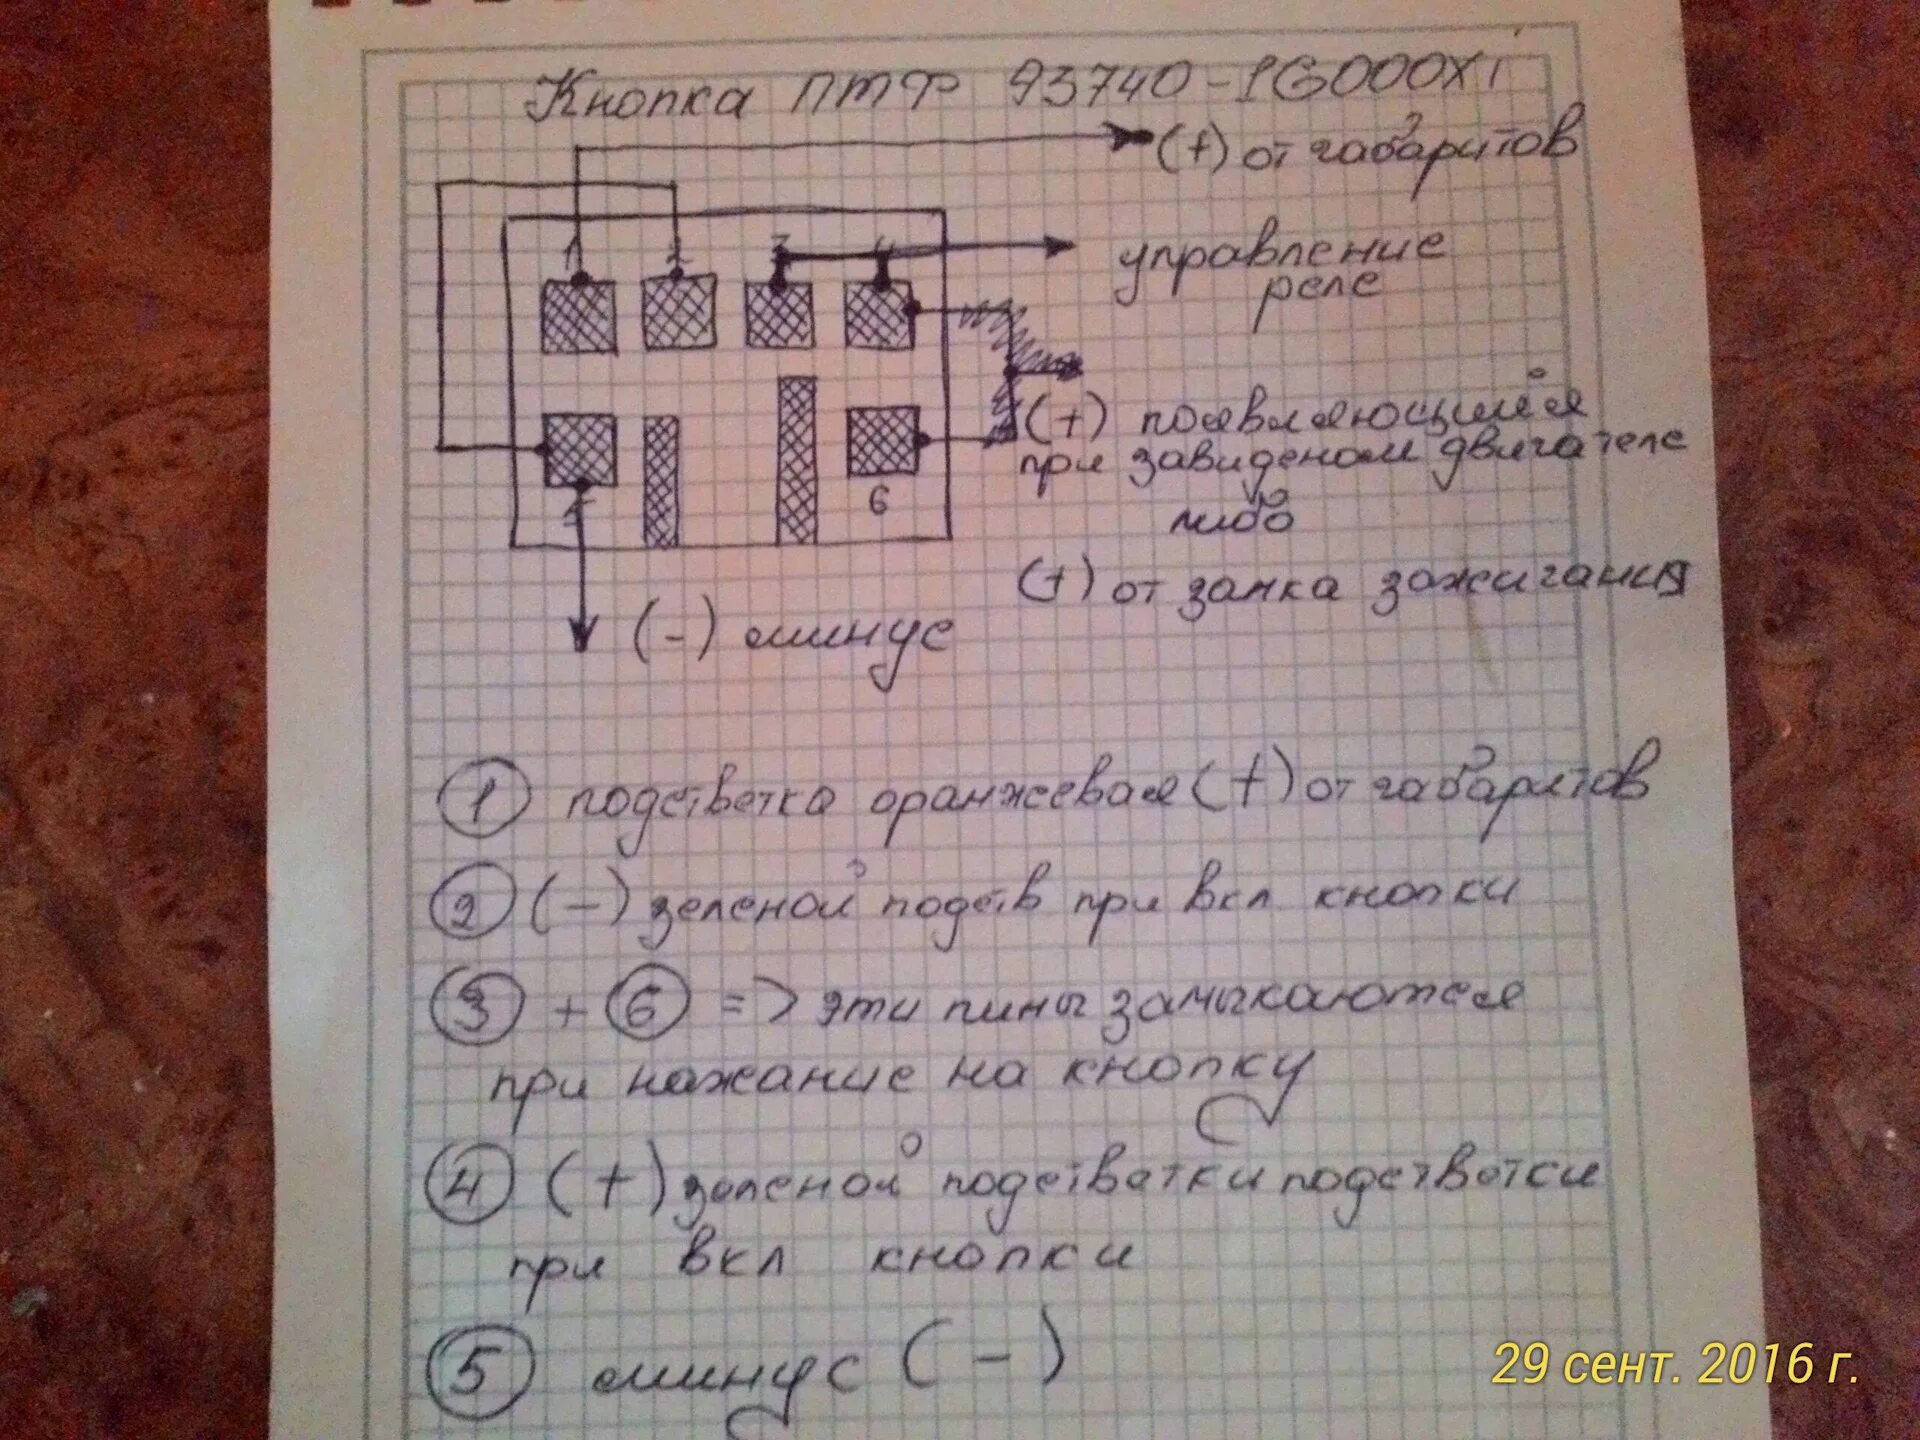 Кнопка ПТФ 93740-1G000X1
(+) от габаритов
1 2 3 4
управление
реле
(+) появляющийся
при заведеном двигателе
либо
6
5
(+) от замка зажигания
(-) минус
1 подстветка оранжевая (+) от габаритов
2 (-) зеленой подств при вкл кнопки
3 + 6 => эти пины замыкаются
при нажание на кнопку
4 (+) зеленой подстветки подстветки
при вкл кнопки
5 минус (-)
29 сент. 2016 г.